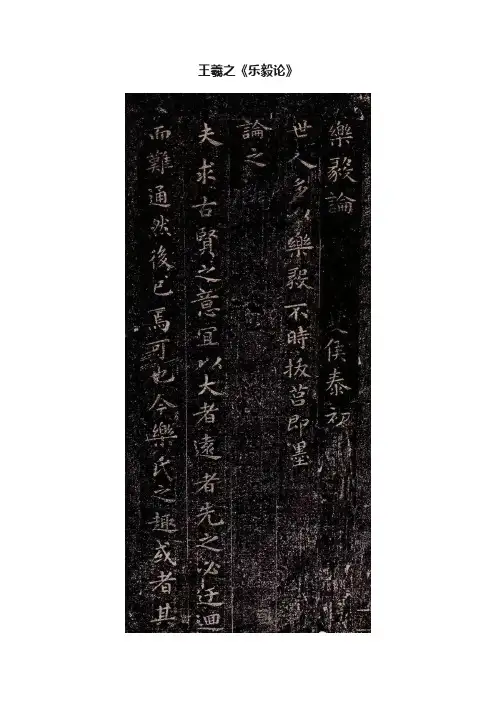 王羲之《乐毅论》
樂毅論 侯泰初
世人多以樂毅不時拔莒即墨
論之
夫求古賢之意宜以大者遠者先之必迂迴
而難通然後已焉可也今樂氏之趣或者其